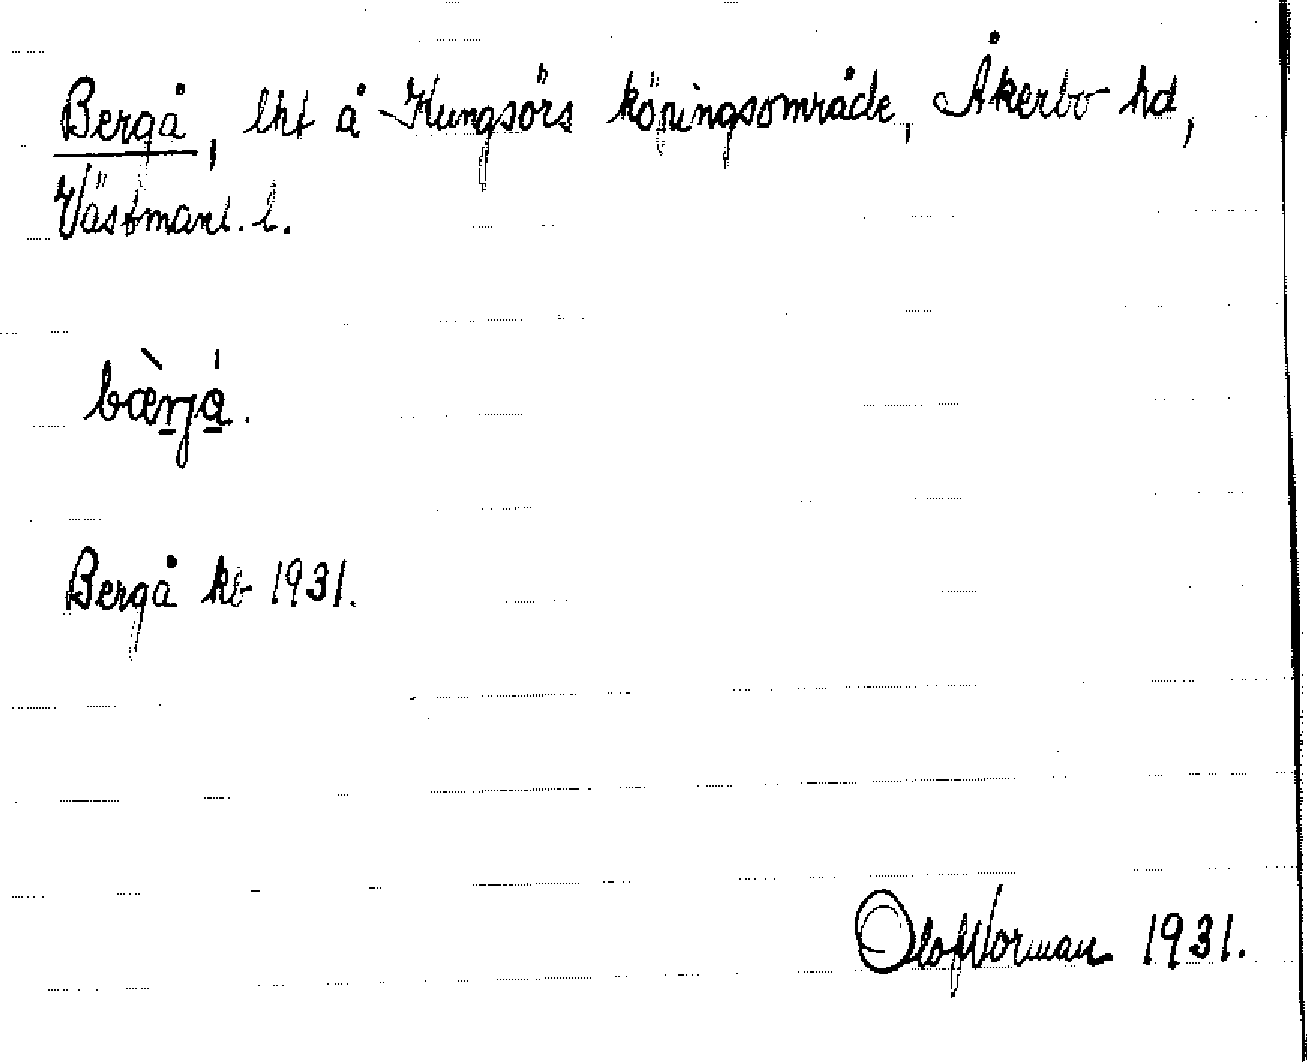 Bergå, lht å Kungsörs köpingsområde, Åkerbo hd,
Västmanl. l.
bæ̀rjǻ.
Bergå kb 1931.
Olof Norman 1931.